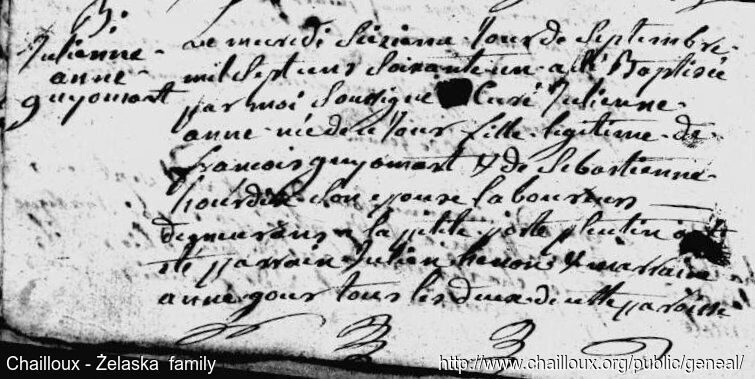 B.
Julienne
anne
guyomart
Le mercredi seizieme jour de septembre
mil sept cens soixante un a été Baptisée
par moi soussigné Curé Julienne
anne née de ce jour fille legitime de
francois guyomart & de Sebastienne
son epouse laboureurs
demeurans a la petite porte a
été parrain Julien & marraine
anne gour tous les deux de cette paroisse
Chailloux - Żelaska family
http://www.chailloux.org/public/geneal/